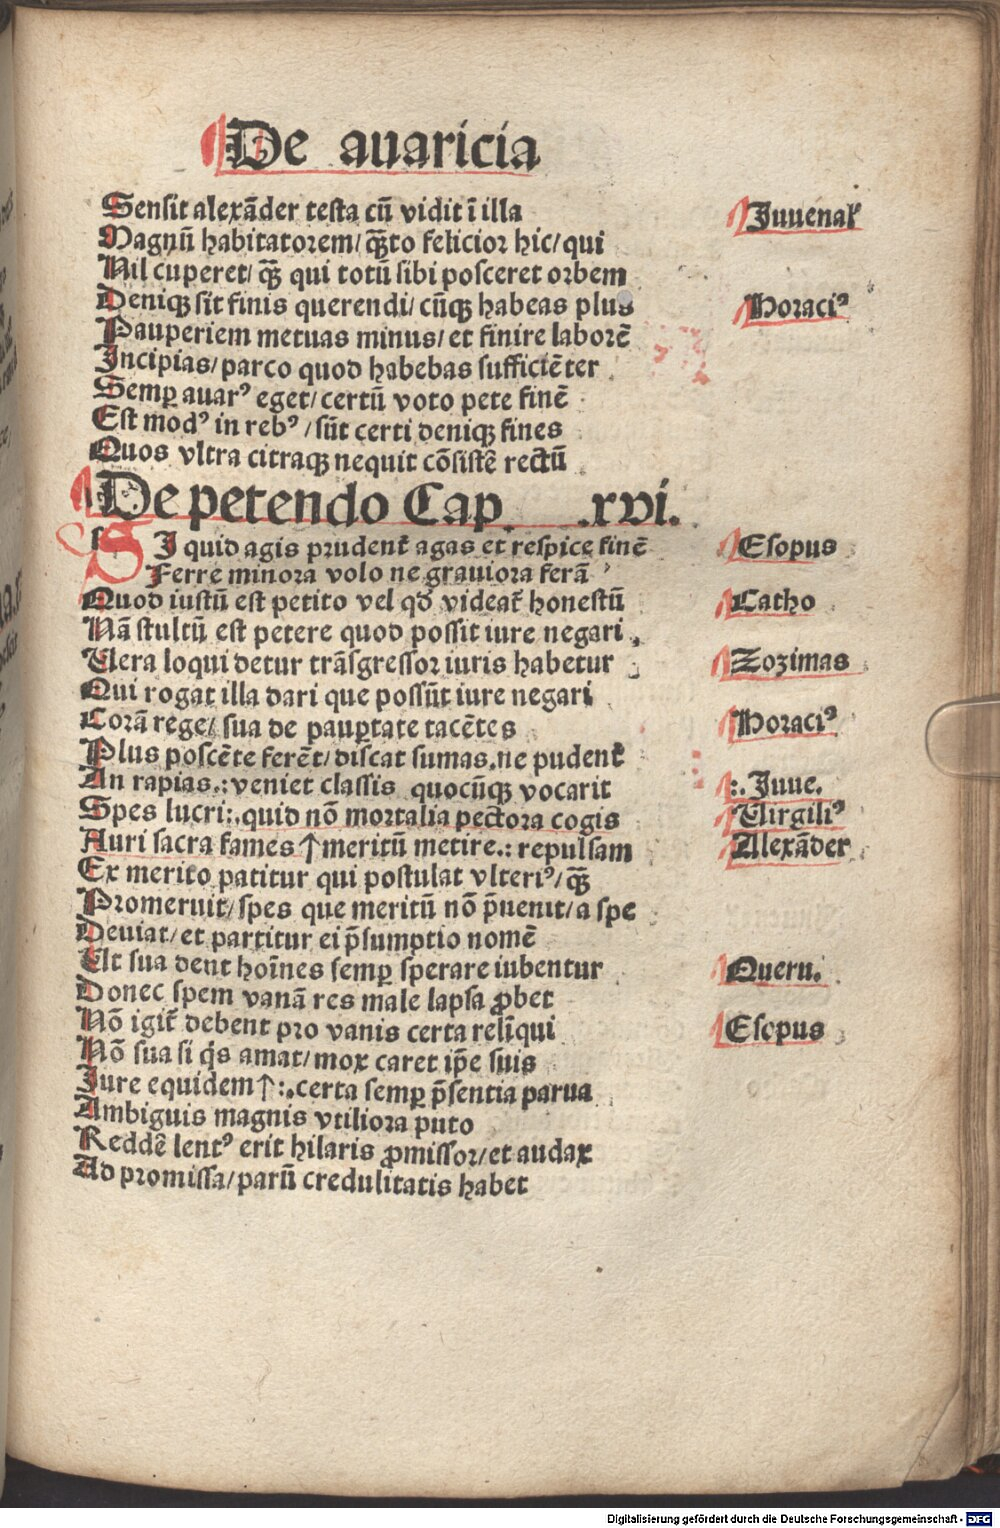 De avaricia
Sensit alexãder testa cũ vidit ĩ illa
Juuenal᷑
Magnũ habitatorem/ q̃ꝫto felicior hic/ qui
Nil cuperet/ q̃ꝫ qui totũ sibi posceret orbem
Deniqꝫ sit finis querendi/ cũqꝫ habeas plus
Horaciꝰ
Pauperiem metuas minus/ et finire laborẽ
Incipias/ parco quod habebas sufficiẽter
Semꝑ auarꝰ eget/ certũ voto pete finẽ
Est modꝰ in rebꝰ /sũt certi deniqꝫ fines
Quos vltra citraqꝫ nequit cõsistẽ rectũ
De petendo Cap. .xvi.
SI quid agis prudent᷑ agas et respice finẽ
Esopus
Ferre minora volo ne grauiora ferã
Quod iustũ est petito vel qd̛ videat᷑ honestũ
Catho
Nã stultũ est petere quod possit iure negari
Vera loqui detur trãsgressor iuris habetur
Zozimas
Qui rogat illa dari que possũt iure negari
Corã rege/ sua de pauꝑtate tacẽtes
Horaciꝰ
Plus poscẽte ferẽt/ discat sumas.ne pudent᷑
An rapias.: veniet classis quocũqꝫ vocarit
:. Juue.
Spes lucri:.quid nõ mortalia pectora cogis
Virgiliꝰ
Auri sacra fames ↑ meritũ metire.: repulsam
Alexãder
Ex merito patitur qui postulat vlteriꝰ/ q̃ꝫ
Promeruit/ spes que meritũ nõ p̃uenit/ a spe
Deuiat/ et partitur ei p̃sumptio nomẽ
Ut sua dent hoĩnes semꝑ sperare iubentur
Queru.
Donec spem vanã res male lapsa ꝓbet
Nõ igit᷑ debent pro vanis certa relĩqui
Esopus
Nõ sua si q̇s amat/ mox caret ip̃e suis
Iure equidem ↑ :.certa semꝑ p̃sentia parua
Ambiguis magnis vtiliora puto
Reddẽ lentꝰ erit hilaris ꝓmissor/ et audax
Ad promissa/ parũ credulitatis habet
Digitalisierung gefördert durch die Deutsche Forschungsgemeinschaft - DFG